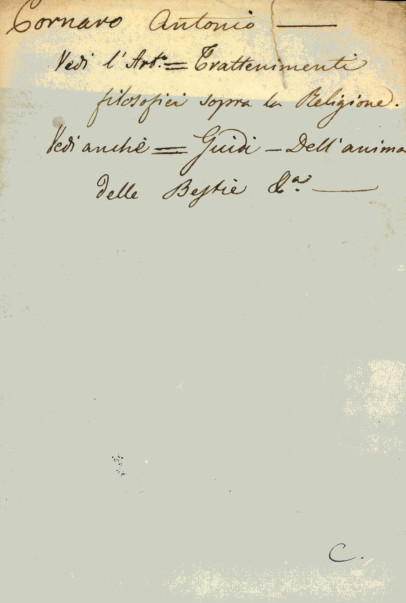 Cornaro Antonio —
Vedi l'Art.º = Trattenimenti
filosofici sopra la Religione.
Vedi anche = Guidi - Dell'anima
delle Bestie &.ª —
C.